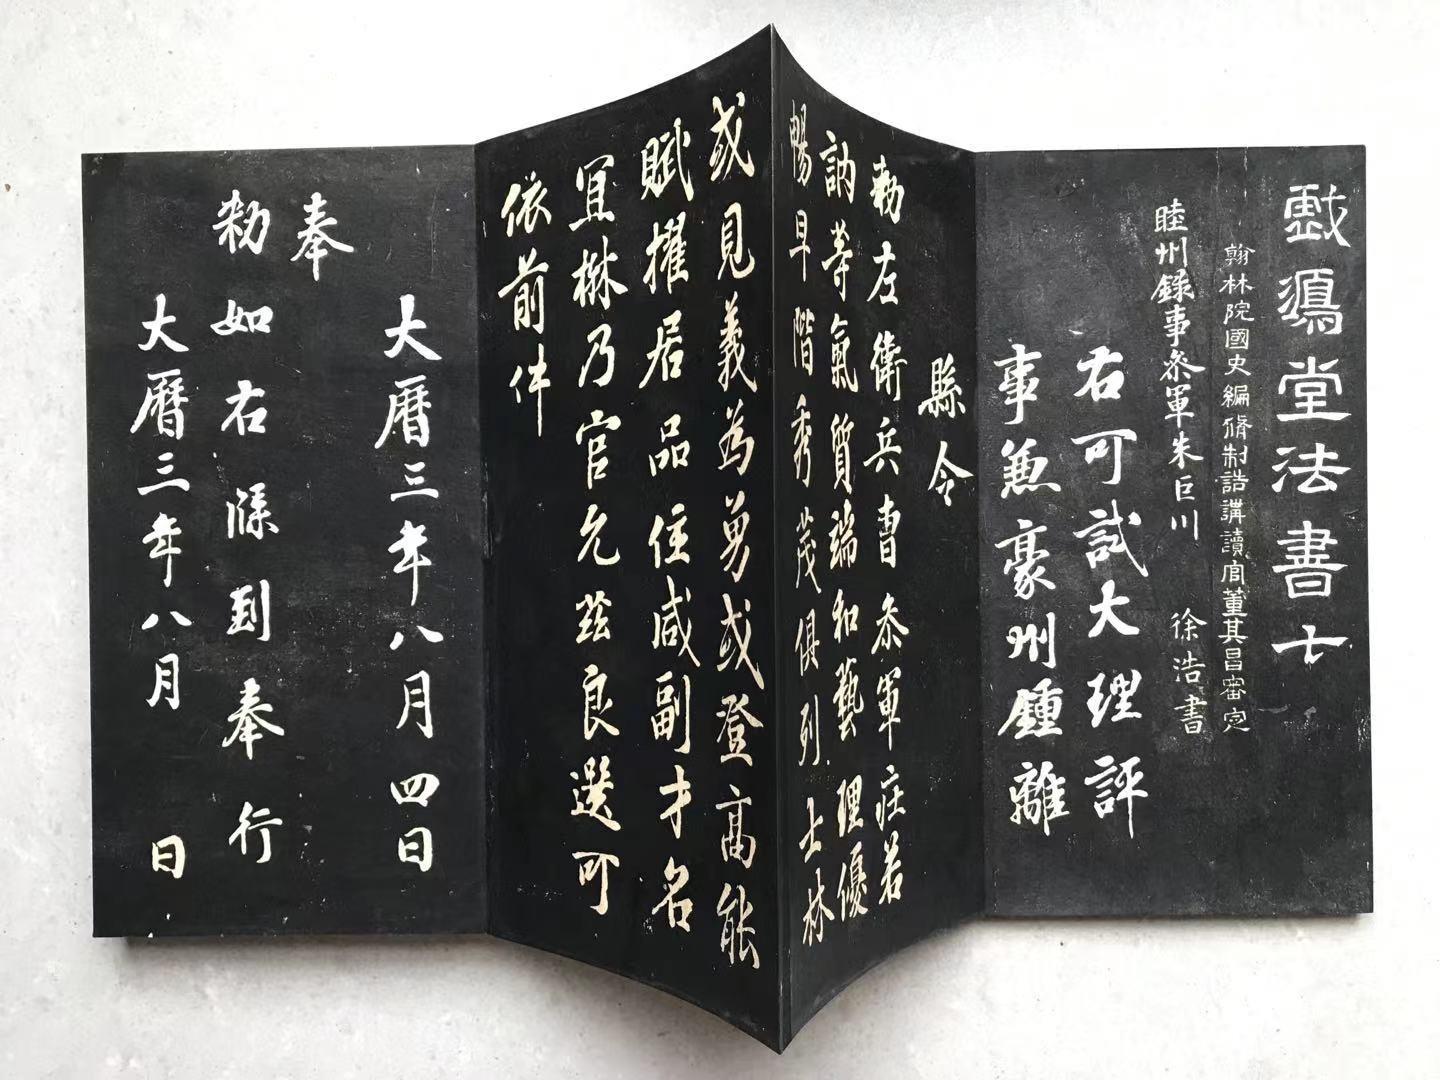 戲鴻堂法書七
翰林院國史編脩制誥講讀官董其昌審定
睦州録事叅軍朱巨川　徐浩書
右可試大理評
事兼豪州鍾離
縣令
勑左衛兵曹叅軍莊若
訥等氣質端和藝理優
暢早階秀茂俱列士林
或見義為勇或登高能
賦擢居品位咸副才名
宜楙乃官允兹良選可
依前件
大曆三年八月四日
奉
勑如右牒到奉行
大曆三年八月　日